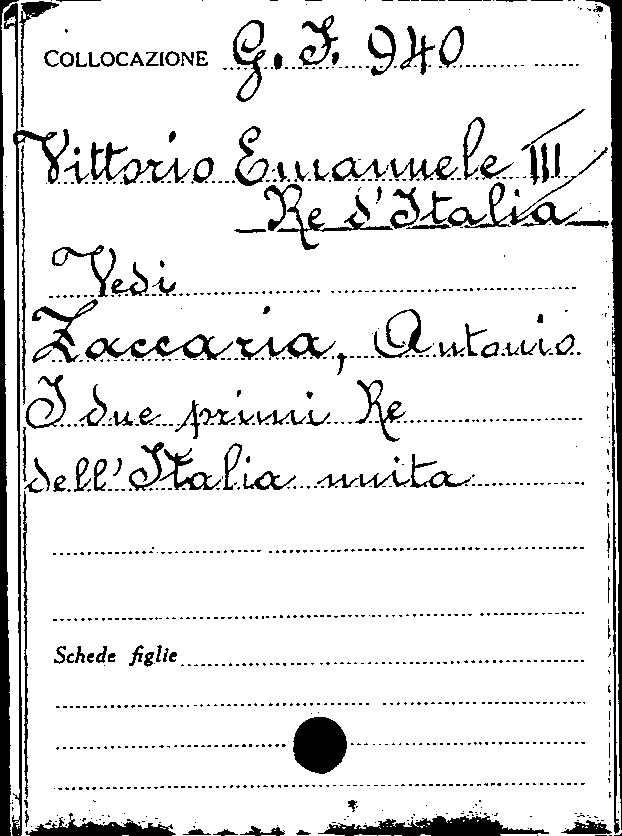 COLLOCAZIONE G. F. 940
Vittorio Emanuele III
Re d'Italia
Vedi
Zaccaria, Antonio
I due primi Re
dell'Italia unita
Schede figlie